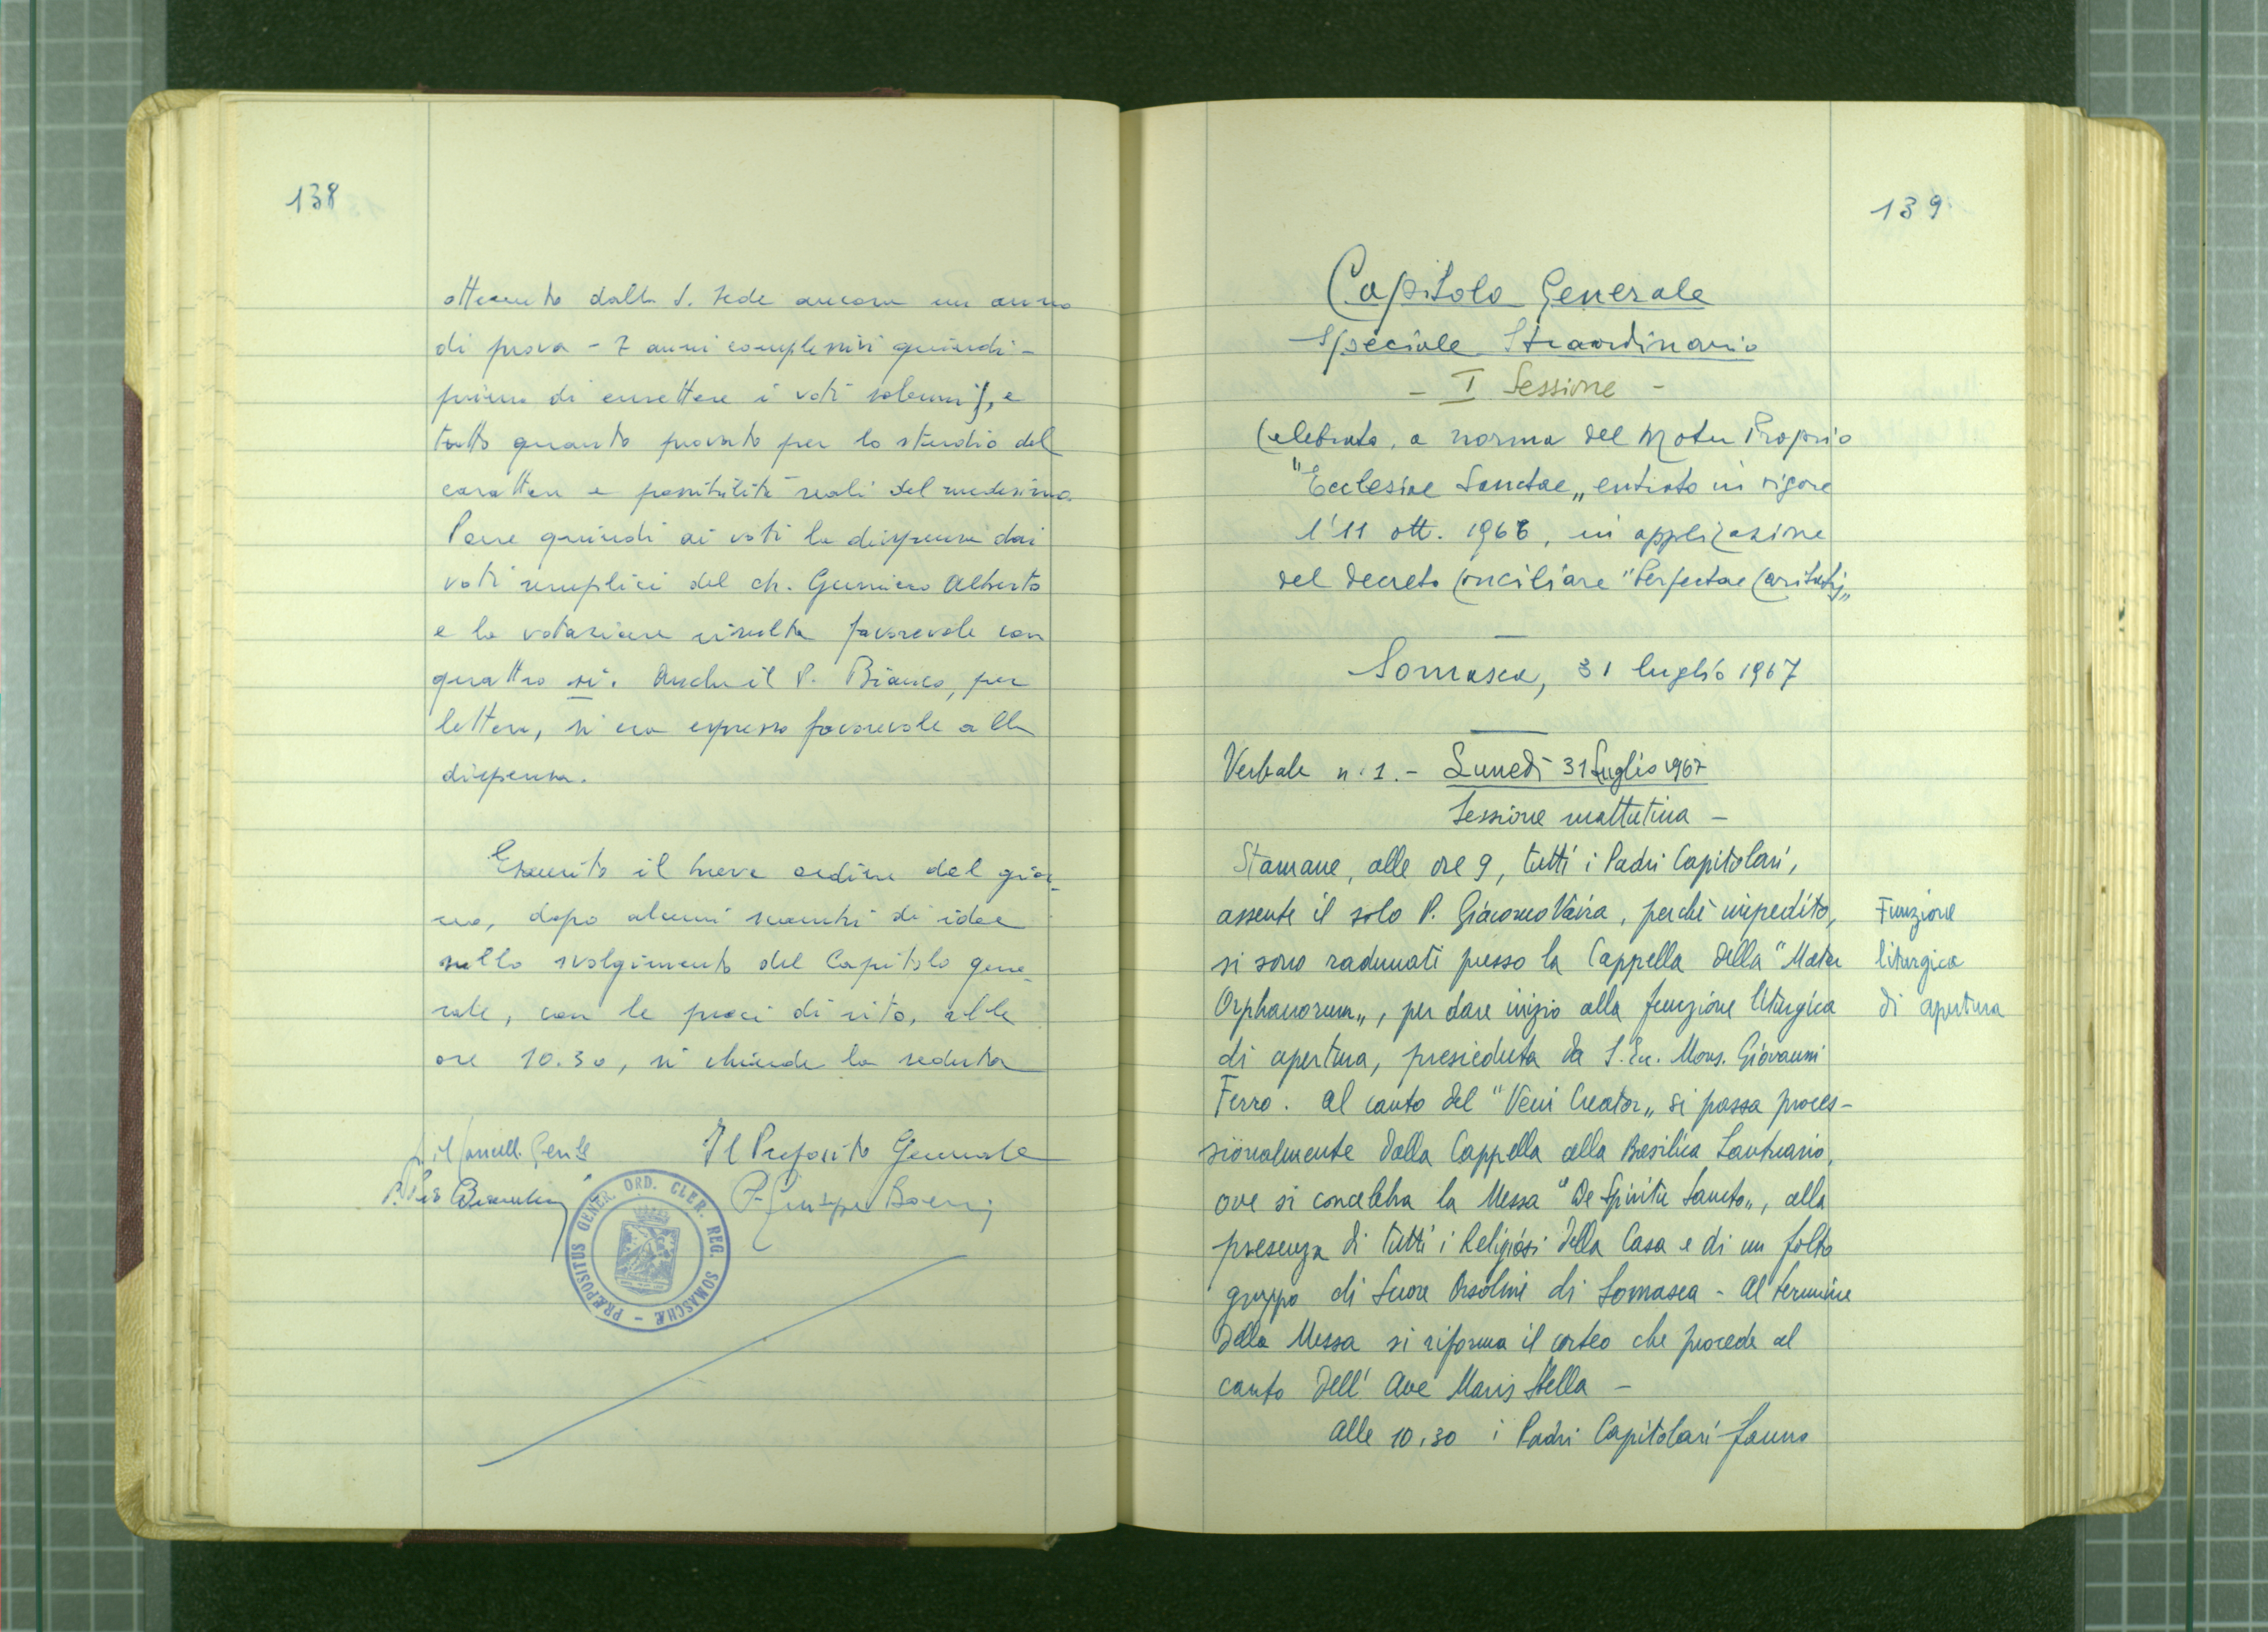 138
ottenuto dalla S. Sede ancora un anno
di prova - 7 anni complessivi quindi -
prima di emettere i voti solenni), e
tutto quanto provato per lo studio del
carattere e possibilità reali del medesimo.
Pone quindi ai voti la dispensa dai
voti semplici del ch. Gumiero Alberto
e la votazione risulta favorevole con
quattro si. Anche il P. Bianco, per
lettera, si era espresso favorevole alla
dispensa.
Esaurito il breve ordine del gior-
no, dopo alcuni scambi di idee
sullo svolgimento del Capitolo gene-
rale, con le preci di rito, alle
ore 10.30, si chiude la seduta
il Cancell. Gen.le
Il Preposito Generale
P. Pio Bianchini
P. Giuseppe Boeris
PRÆPOSITUS GENER. ORD. CLER. REG. SOMASCHÆ -
139
Capitolo Generale
Speciale Straordinario
- I Sessione -
Celebrato, a norma del Motu Proprio
"Ecclesiae Sanctae„ entrato in vigore
l'11 ott. 1966, in applicazione
del decreto conciliare "Perfectae Caritatis„
Somasca, 31 luglio 1967
Verbale n. 1. - Lunedì 31 Luglio 1967
Sessione mattutina -
Stamane, alle ore 9, tutti i Padri Capitolari,
assente il solo P. Giacomo Vaira, perchè impedito,
si sono radunati presso la Cappella della "Mater
Orphanorum„, per dare inizio alla funzione liturgica
di apertura, presieduta da S. Ec. Mons. Giovanni
Ferro. Al canto del "Veni Creator„ si passa proces-
sionalmente dalla Cappella alla Basilica Santuario,
ove si concelebra la Messa "De Spiritu Sancto„, alla
presenza di tutti i Religiosi della Casa e di un folto
gruppo di Suore Orsoline di Somasca - Al termine
della Messa si riforma il corteo che procede al
canto dell'Ave Maris Stella -
Alle 10,30 i Padri Capitolari fanno
Funzione
liturgica
di apertura